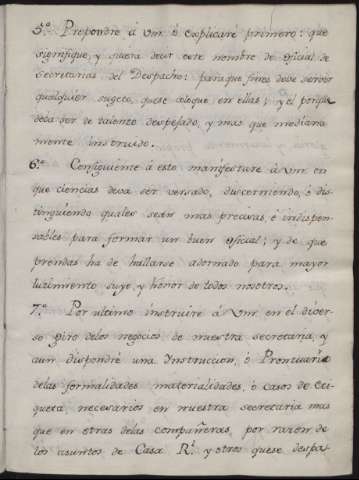 5.º Propondré á Vm. ó explicaré primero: que
significa, y quiera decir este nombre de oficial de
Secretarias del Despacho: paraque fines deve servir
qualquier sugeto, quese aloque en ellas; y el porque
deva ser de talento despejado, y mas que mediana
mente instruido.
6.º Consiguiente á esto manifestare à Vm. en
que ciencias deva ser versado, discerniendo, ó dis
tinguiendo quales sean mas precisas, é indispen-
sables para formar un buen oficial; y de que
prendas ha de hallarse adornado para mayor
lucimiento suyo, y honor de todos nosotros.
7.º Por ultimo instruiré á Vm. en el diver-
so giro delos negocios de nuestra secretaria, y
aun dispondré una Instruccion, ó Prontuario
delas formalidades materialidades, ó casos de Eti-
queta, necesarios en nuestra secretaria mas
que en otras delas compañeras, por razon de
los asuntos de Casa R.l y otros quese despa-